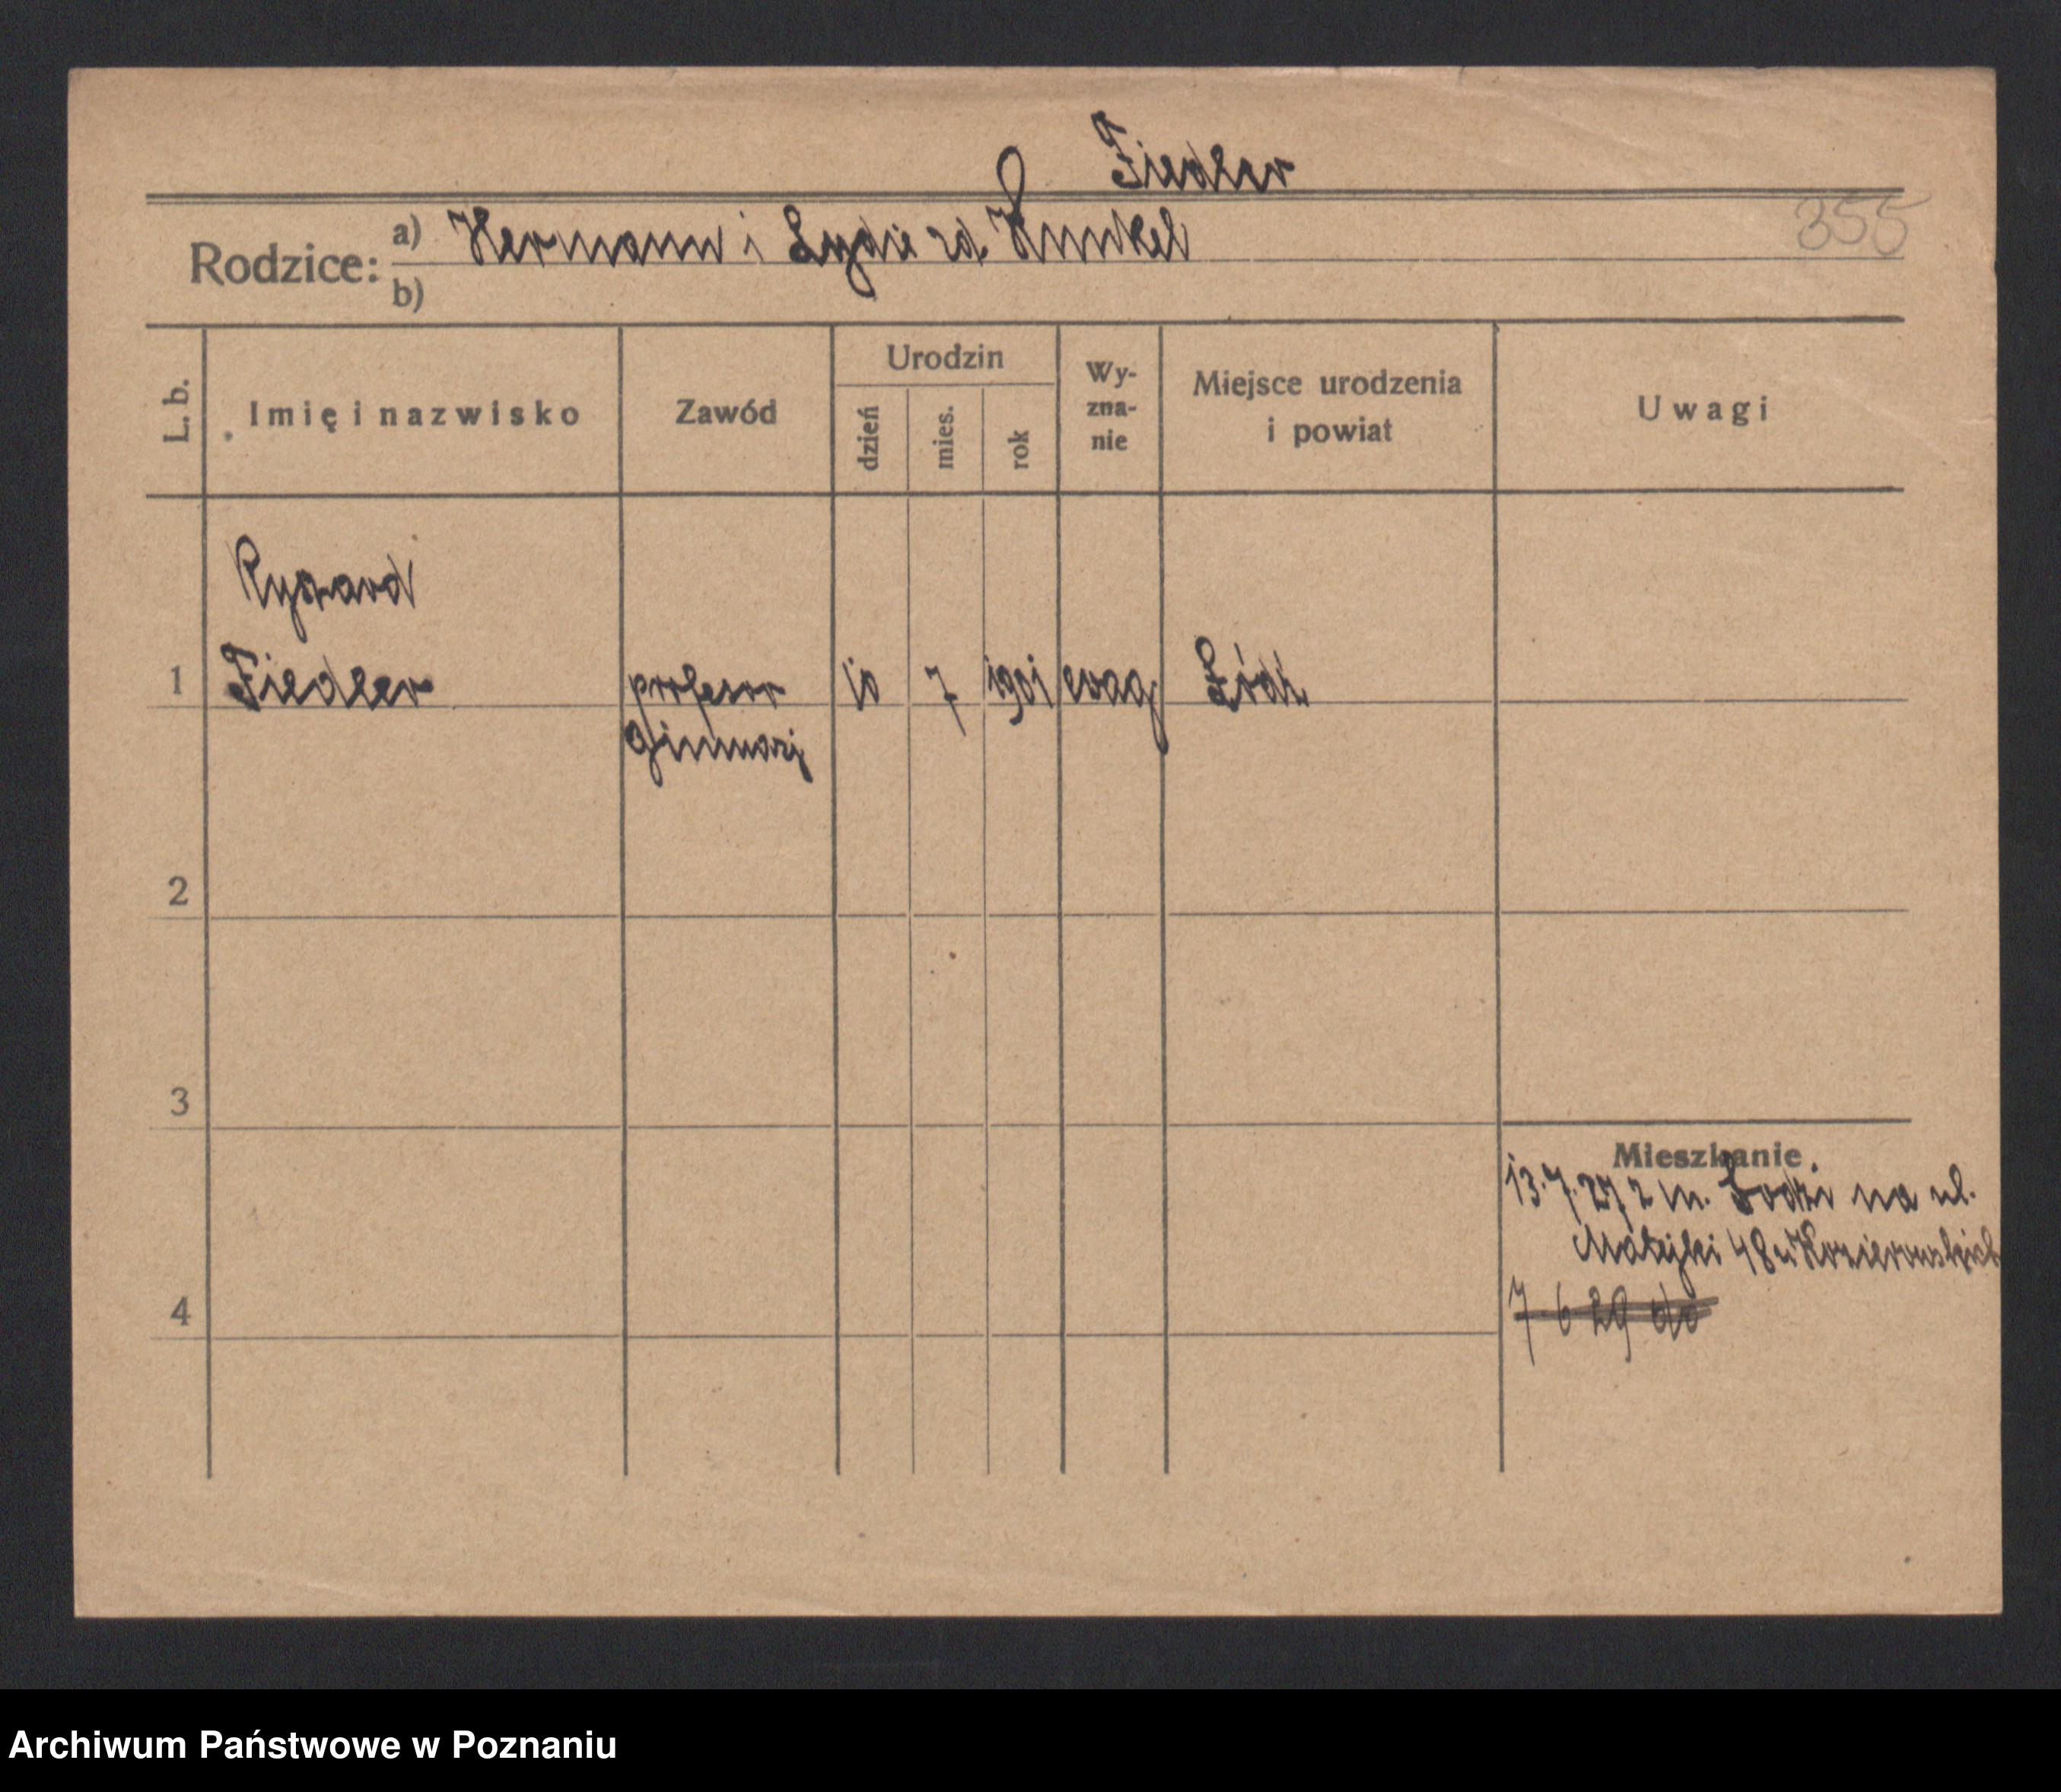 Fiedler
355
Rodzice:
a) Hermann i Lydie zd. Kunkel
b)
L. b.
Imię i nazwisko
Zawód
Urodzin
dzień
mies.
rok
Wy-
zna-
nie
Miejsce urodzenia
i powiat
Uwagi
Ryszard
1 Fiedler profesor 10 7 1901 ewag Łódź
Gimnazj
2
3
Mieszkanie
13.7.27 z m. Łodzi na ul.
Matejki 48 u
4
7 6 29 do
Archiwum Państwowe w Poznaniu